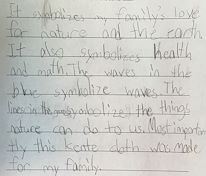 It symbolizes my family's love
for nature and the earth.
It also symbolizes health
and math. The waves in the
blue symbolize waves. The
lines in the symbolize the things
nature can do to us. Most importan
tly this kente cloth was made
for my family.